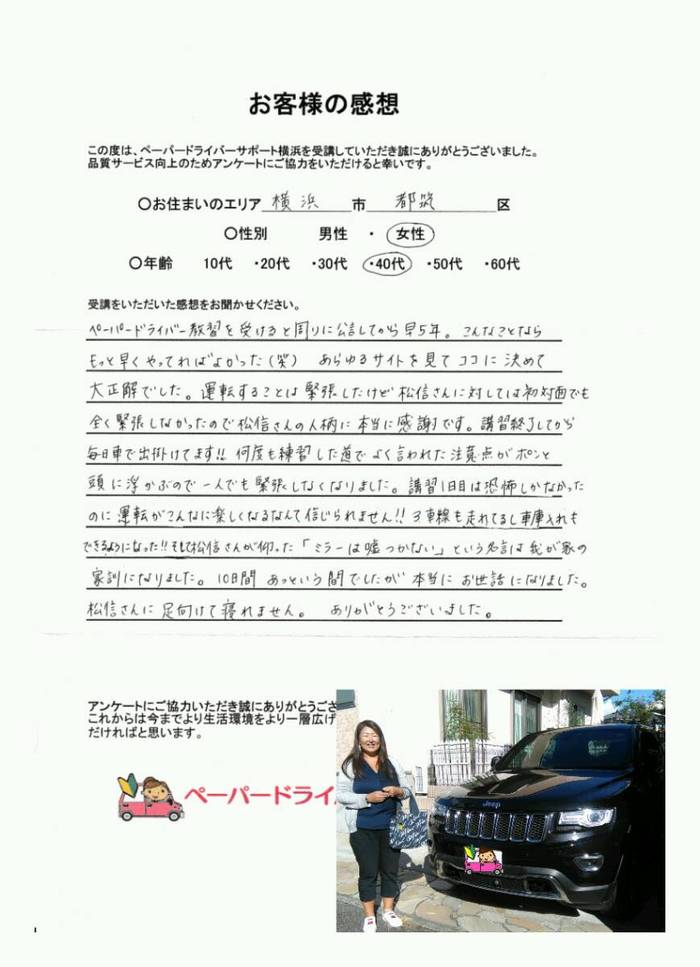 お客様の感想
この度は、ペーパードライバーサポート横浜を受講していただき誠にありがとうございました。
品質サービス向上のためアンケートにご協力をいただけると幸いです。
〇お住まいのエリア 横浜 市 都筑 区
〇性別 男性 ・ 女性
〇年齢 10代 ・20代 ・30代 ・40代 ・50代 ・60代
受講をいただいた感想をお聞かせください。
ペーパードライバー教習を受けると周りに公言してから早5年。こんなことなら
もっと早くやってればよかった(笑) あらゆるサイトを見てココに決めて
大正解でした。運転することは緊張したけど松信さんに対しては初対面でも
全く緊張しなかったので松信さんの人柄に本当に感謝です。講習終了してから
毎日車で出掛けてます!! 何度も練習した道でよく言われた注意点がポンと
頭に浮かぶので一人でも緊張しなくなりました。講習1日目は恐怖しかなかった
のに運転がこんなに楽しくなるなんて信じられません!! 3車線も走れてるし車庫入れも
できるようになった!! そして松信さんが仰った「ミラーは嘘つかない」という名言は我が家の
家訓になりました。10日間あっという間でしたが本当にお世話になりました。
松信さんに足向けて寝れません。 ありがとうございました。
アンケートにご協力いただき誠にありがとうござ
これからは今までより生活環境をより一層広げ
だければと思います。
ペーパードライ
Jeep